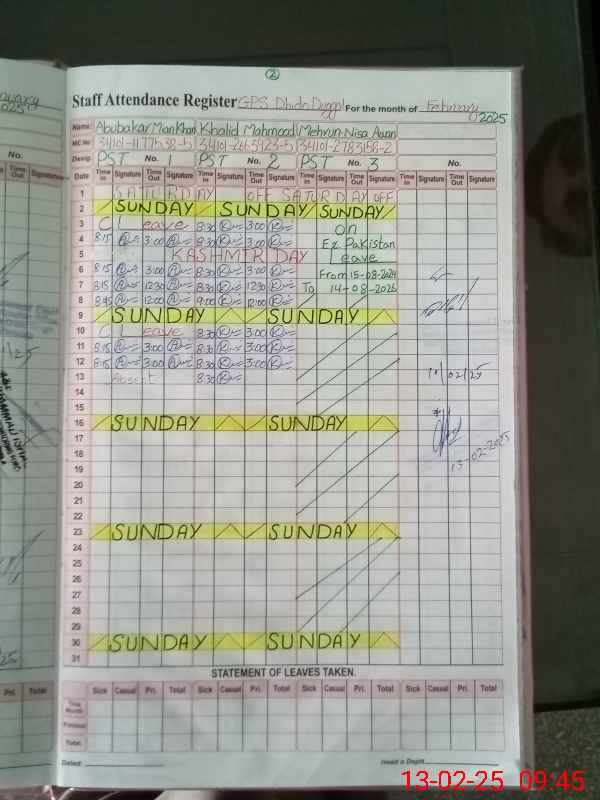 ②
Staff Attendance Register GPS Dhdo Duggal For the month of February 2025
Name: Abubakar Man Khan Khalid Mahmood Mehrun Nisa Awan
NIC No 34101-1177538-5 34101-2665423-5 34101-2783158-2
Desig. PST No. 1 PST No. 2 PST No. 3 No.
Date Time In Signature Time Out Signature Time In Signature Time Out Signature Time In Signature Time Out Signature Time In Signature Time Out Signature
1 SATURDAY OFF SATURDAY OFF
2 SUNDAY SUNDAY SUNDAY
3 C Leave 8:30 3:00 on
4 8:15 3:00 8:30 3:00 Ex Pakistan
5 KASHMIR DAY Leave
6 8:15 3:00 8:30 3:00 From 15-08-2024
7 8:15 12:30 8:30 12:30 To 14-08-2026
8 8:45 12:00 9:00 12:00
9 SUNDAY SUNDAY
10 C Leave 8:30 3:00
11 8:15 3:00 8:30 3:00
12 8:15 3:00 8:30 3:00
13 Absent 8:30
14
15
16 SUNDAY SUNDAY
17
18
19
20
21
22
23 SUNDAY SUNDAY
24
25
26
27
28
29
30 SUNDAY SUNDAY
31
10/02/25
13-02-2025
STATEMENT OF LEAVES TAKEN.
Sick Casual Pri. Total Sick Casual Pri. Total Sick Casual Pri. Total Sick Casual Pri. Total
This Month
Previous
Total.
Dated: Head a Deptt
No.
Time In Signature Time Out Signature
Pri. Total
13-02-25 09:45